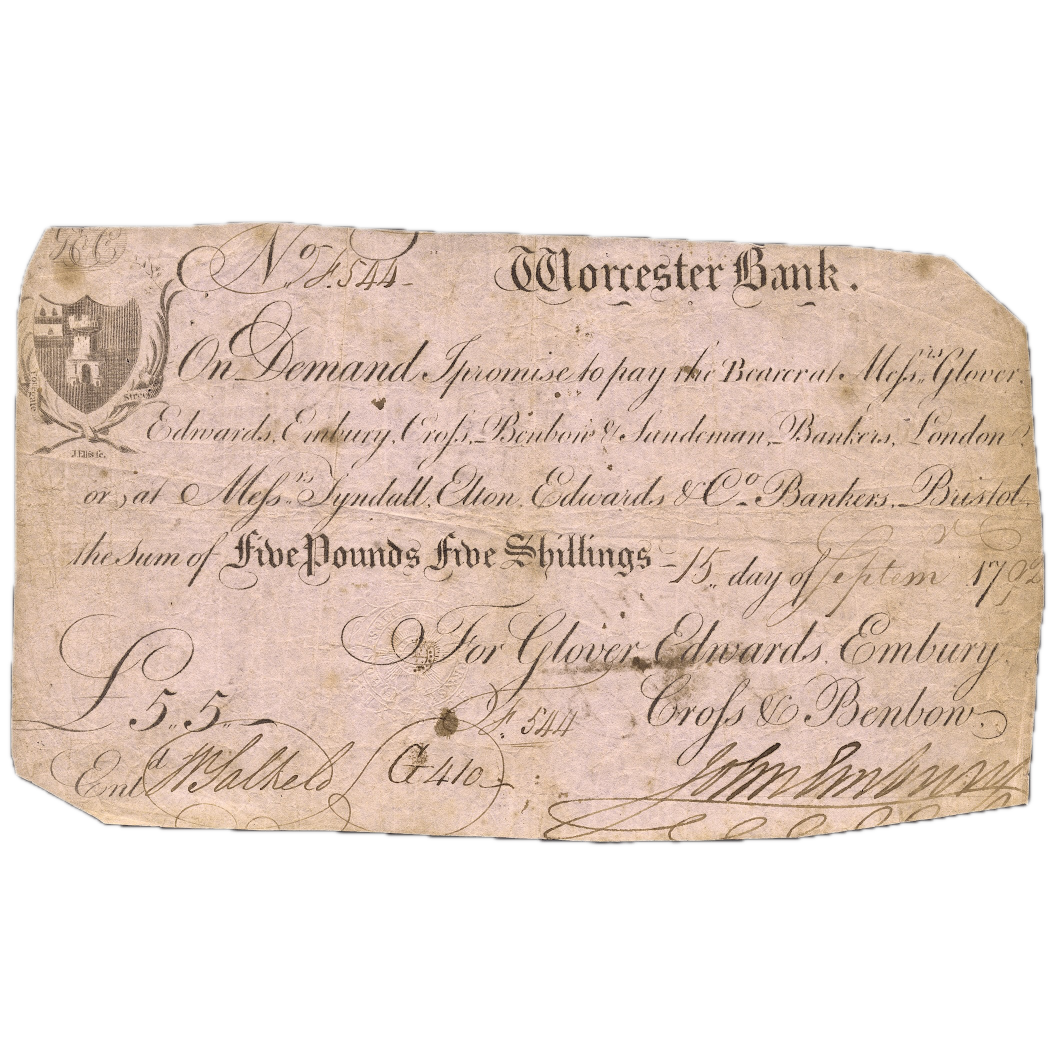 GEC
No. F.544 Worcester Bank.
On Demand I promise to pay the Bearer at Mefsrs. Glover,
Edwards, Embury, Crofs, Benbow & Sandeman, Bankers, London
or, at Mefsrs. Tyndall, Elton, Edwards & Co. Bankers, Bristol,
the sum of Five Pounds Five Shillings 15 day of Septemr 1792
Street
J. Ellis sc.
For Glover, Edwards, Embury,
£5,,5,, F.544 Crofs & Benbow
Entd W Salkeld G 410 John Embury